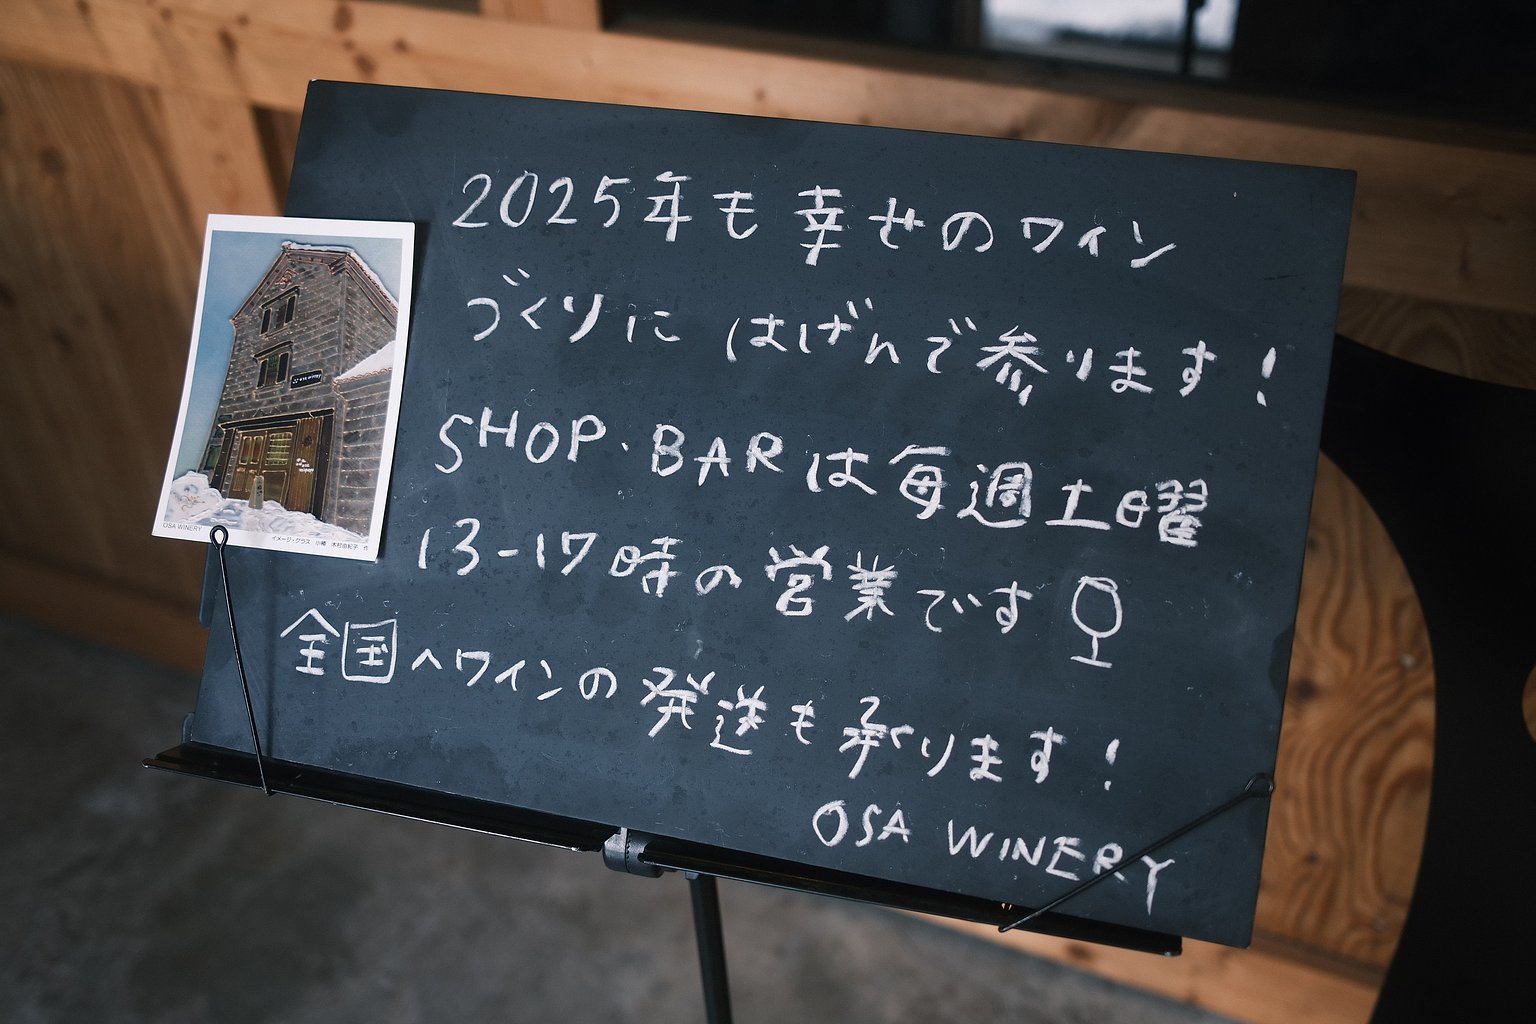 2025年も幸せのワイン
づくりにはげんで参ります！
SHOP・BARは毎週土曜
13-17時の営業です
全国へワインの発送も承ります！
OSA WINERY
OSA WINERY
イメージ・グラス 小樽 木村由紀子 作